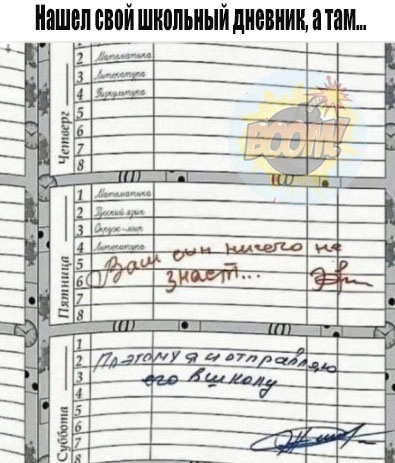 Нашел свой школьный дневник, а там...
2 Математика
3 Литература
4 Физкультура
5
6
7
8
Четверг
BOOM!
1 Математика
2 Русский язык
3 Окруж-мир
4 Литература
5
6
7
8
Пятница
Ваш сын ничего не
знает...
1
2
3
4
5
6
7
8
Суббота
Поэтому я и отправляю
его в школу